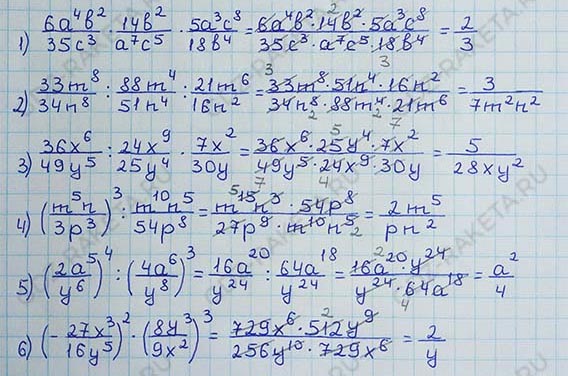 1) 6a⁴b²/35c³ · 14b²/a⁷c⁵ · 5a³c⁸/18b⁴ = 6a⁴b² · 14b² · 5a³c⁸/35c³ · a⁷c⁵ · 18b⁴ = 2/3
2) 33m⁸/34n⁸ : 88m⁴/51n⁴ : 21m⁶/16n² = 33m⁸ · 51n⁴ · 16n²/34n⁸ · 88m⁴ · 21m⁶ = 3/7m²n²
3) 36x⁶/49y⁵ : 24x⁹/25y⁴ · 7x²/30y = 36x⁶ · 25y⁴ · 7x²/49y⁵ · 24x⁹ · 30y = 5/28xy²
4) (m⁵n/3p³)³ : m¹⁰n⁵/54p⁸ = m¹⁵n³ · 54p⁸/27p⁹ · m¹⁰n⁵ = 2m⁵/pn²
5) (2a⁵/y⁶)⁴ : (4a⁶/y⁸)³ = 16a²⁰/y²⁴ : 64a¹⁸/y²⁴ = 16a²⁰ · y²⁴/y²⁴ · 64a¹⁸ = a²/4
6) (-27x³/16y⁵)² · (8y³/9x²)³ = 729x⁶ · 512y⁹/256y¹⁰ · 729x⁶ = 2/y